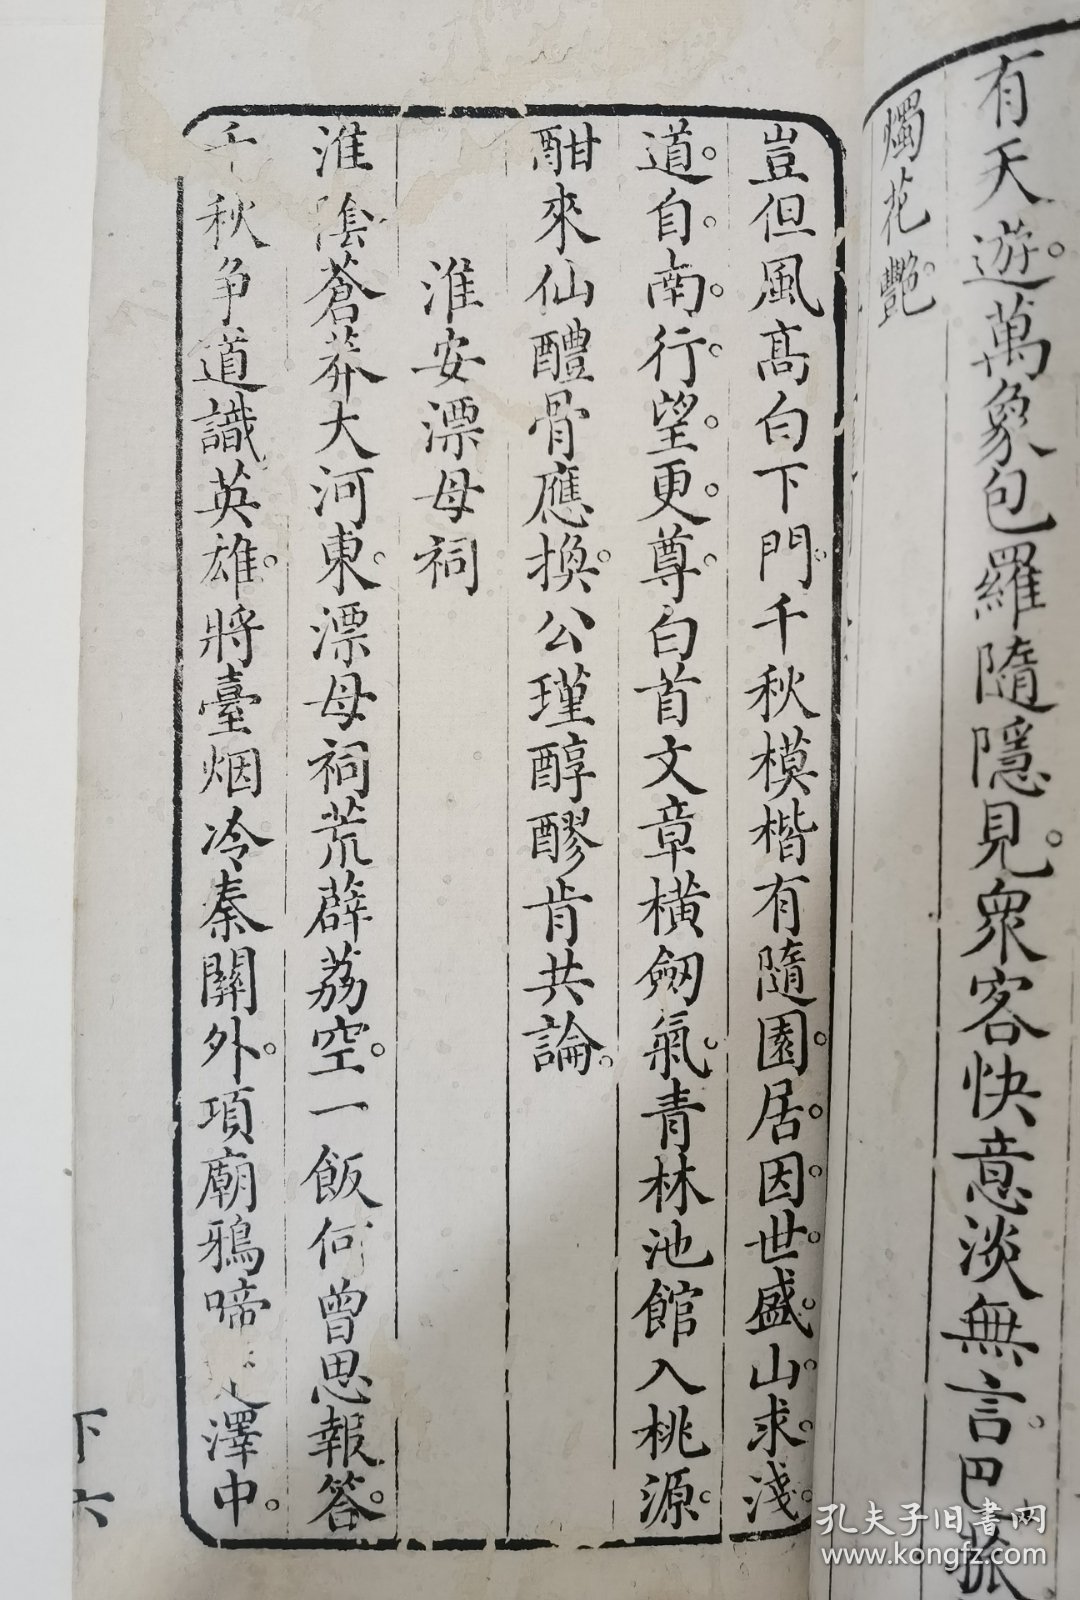 有天遊萬象包羅隨隱見衆客快意淡無言巴
燭花艷
豈但風高白下門千秋模楷有隨園居因世盛山求淺
道自南行望更尊白首文章橫劒氣青林池館入桃源
酣來仙醴骨應換公瑾醇醪肯共論
淮安漂母祠
淮陰蒼莽大河東漂母祠荒薜荔空一飯何曾思報答
千秋爭道識英雄將臺烟冷秦關外項廟鴉啼澤中
下六
孔夫子旧書网
www.kongfz.com